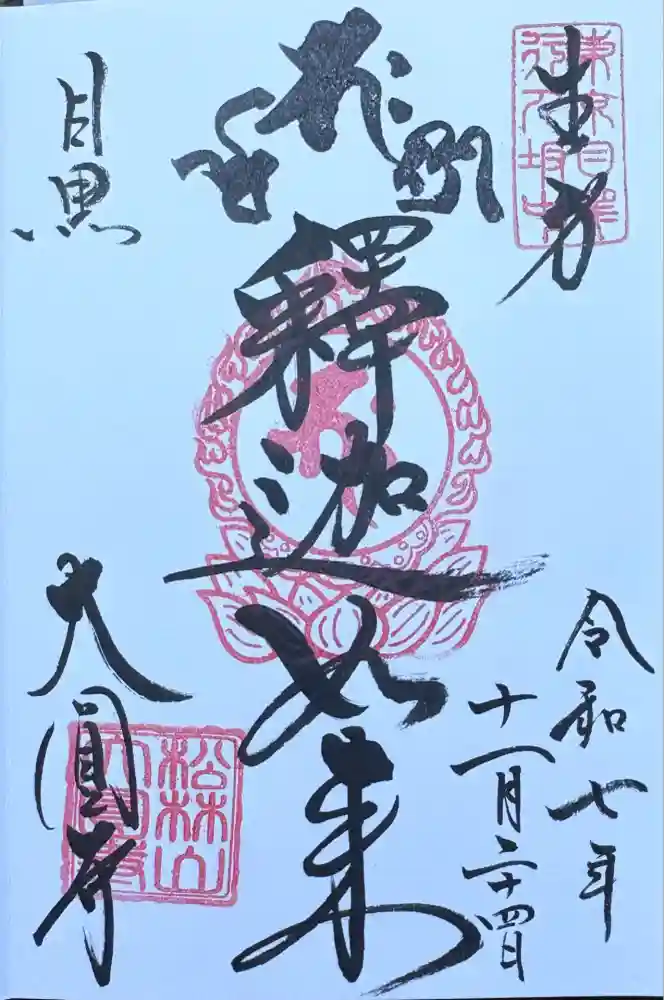 東京目黒
行人坂
生身
釋迦如来
令和七年
十一月二十四日
目黒
大圓寺
松林山
大圓寺